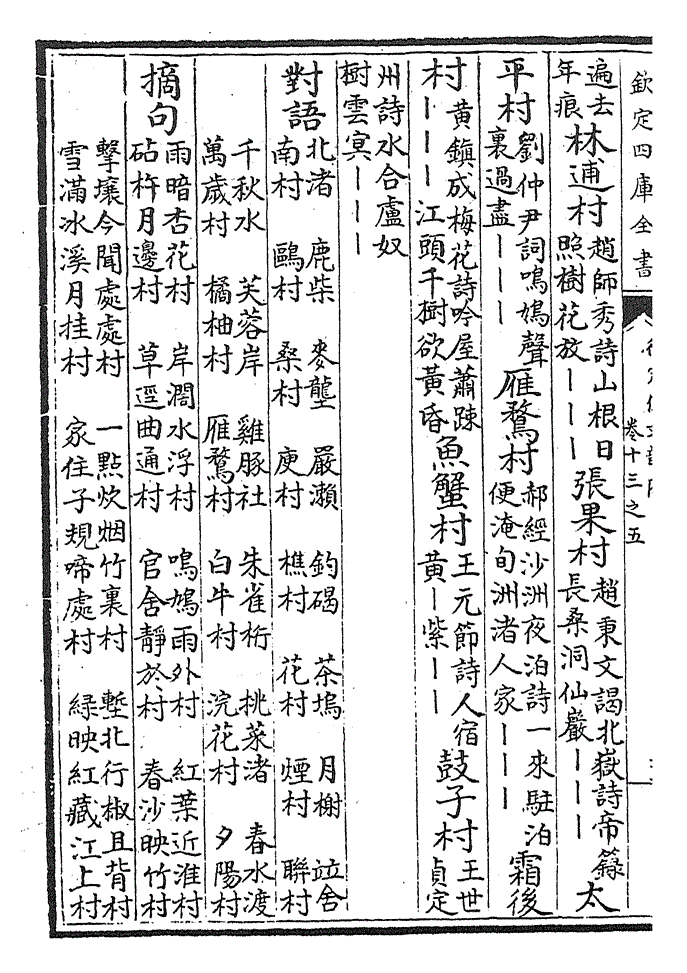 欽定四庫全書
卷十三之五
遍去
年痕
林逋村
趙師秀詩山根日
照樹花放｜｜｜
張果村
趙秉文謁北嶽詩帝籙
長桑洞仙巖｜｜｜
太
平村
劉仲尹詞鳴鳩聲
裏過盡｜｜｜
雁鶩村
郝經沙洲夜泊詩一來駐泊
便淹旬洲渚人家｜｜｜
霜後
村
黄鎮成梅花詩吟屋蕭踈
｜｜｜江頭千樹欲黄昏
魚蟹村
王元節詩人宿
黄｜紫｜｜
鼓子村
王世
貞定
州詩水合盧奴
樹雲冥｜｜｜
對語
北渚 鹿柴 麥壟 嚴瀨 釣碣 茶塢 月榭 竝舍
南村 鷗村 桑村 庾村 樵村 花村 煙村 聯村
千秋水 芙蓉岸 雞豚社 朱雀桁 挑菜渚 春水渡
萬歲村 橘柚村 雁鶩村 白牛村 浣花村 夕陽村
摘句
雨暗杏花村 岸濶水浮村 鳴鳩雨外村 紅葉近淮村
砧杵月邊村 草逕曲通村 官舍靜於村 春沙映竹村
擊壤今聞處處村 一點炊烟竹裏村 塹北行椒且背村
雪滿冰溪月挂村 家住子規啼處村 緑映紅藏江上村